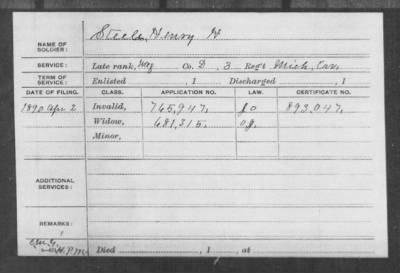 NAME OF SOLDIER: Steele, Henry H
SERVICE: Late rank, Wag Co. D, 3 Regt Mich. Cav.
TERM OF SERVICE: Enlisted , 1 Discharged , 1
DATE OF FILING. CLASS. APPLICATION NO. LAW. CERTIFICATE NO.
1890 Apr 2 Invalid, 765,947, 893,047,
Widow, 681,315,
Minor,
ADDITIONAL SERVICES:
REMARKS:
Died , 1 , at